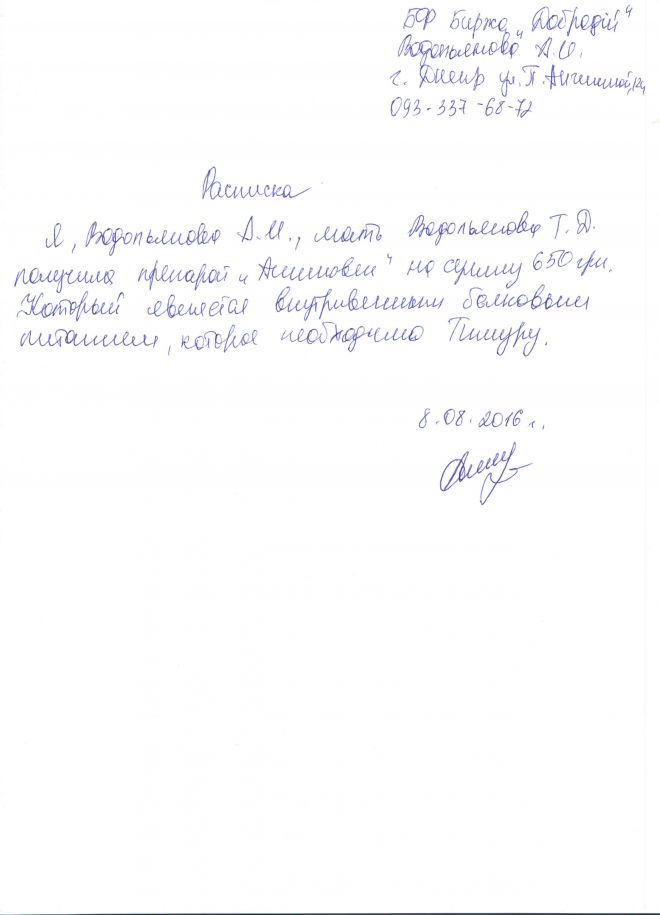 БФ Биржа "Добродій"
Водопьянова А.И.
г. Днепр ул. П.
093-337-68-72
Расписка
Я, Водопьянова А.И., мать Водопьянова Т.Д.
получила препарат "Аминовен" на сумму 650 грн.
Который является внутривенным белковым
питанием, которое необходимо Тимуру.
8.08.2016 г.